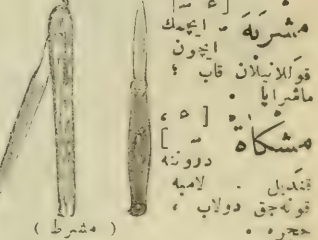 [ ء ]
مشربَه - ایچمك
ایچون
قوللانیلان قاب ؛
ماشراپا ٠
[ ء ،
مشكاة ]
دروننه
قندیل ٠ لامبه
قونه‌جق دولاب ،
حجره ٠
( مشرط )